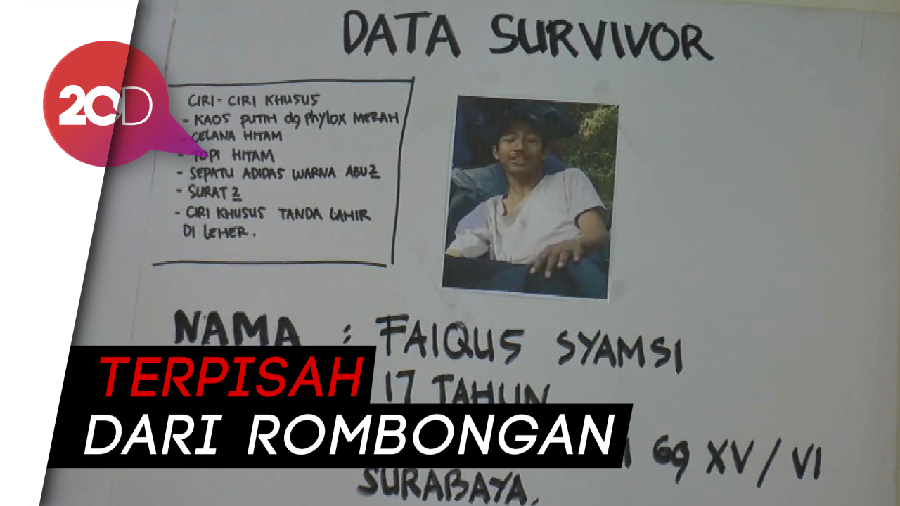 DATA SURVIVOR
20D
CIRI-CIRI KHUSUS
- KAOS PUTIH dg Phylox MERAH
- CELANA HITAM
- TOPI HITAM
- SEPATU ADIDAS WARNA ABU2
- SURAT2
- CIRI KHUSUS TANDA LAHIR
DI LEHER.
NAMA : FAIQUS SYAMSI
17 TAHUN
69 XV / VI
SURABAYA.
TERPISAH
DARI ROMBONGAN